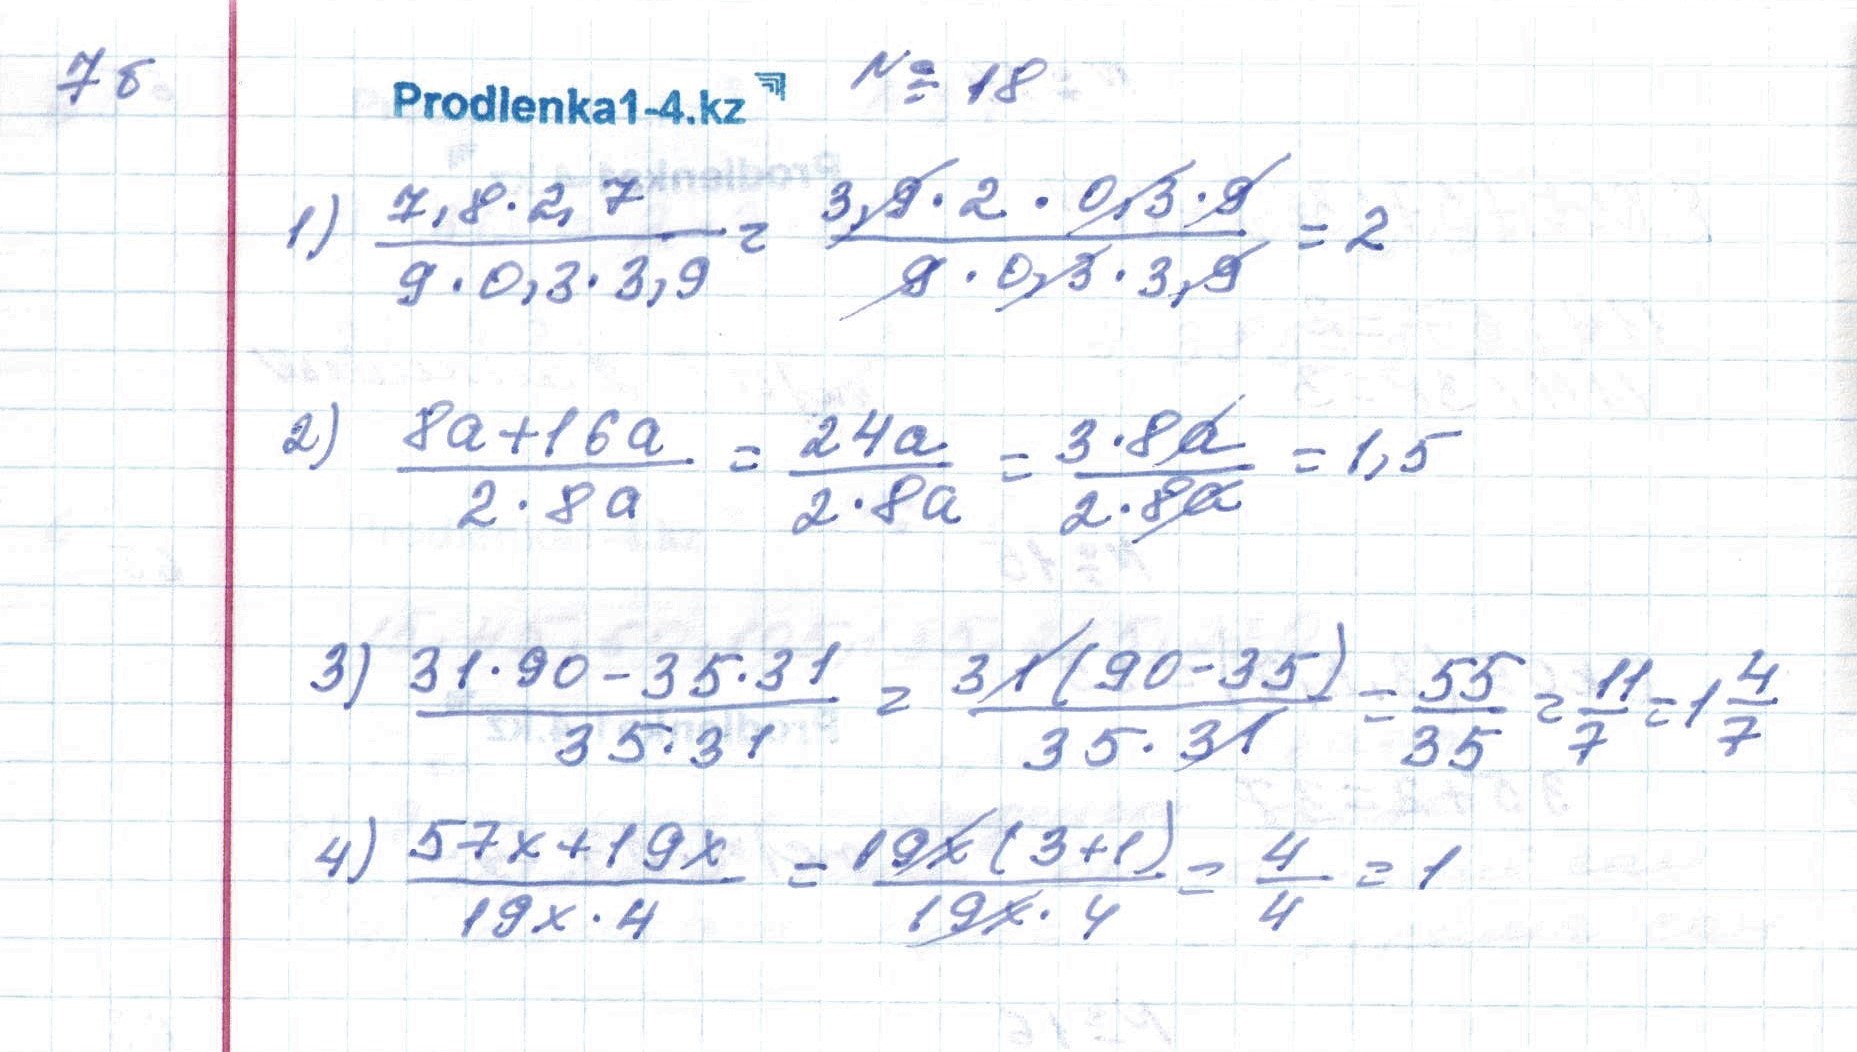 7б
Prodlenka1-4.kz
№ 18
1) 7,8·2,7 / 9·0,3·3,9 = 3,9·2·0,3·9 / 9·0,3·3,9 = 2
2) 8a+16a / 2·8a = 24a / 2·8a = 3·8a / 2·8a = 1,5
3) 31·90-35·31 / 35·31 = 31(90-35) / 35·31 = 55/35 = 11/7 = 1 4/7
4) 57x+19x / 19x·4 = 19x(3+1) / 19x·4 = 4/4 = 1